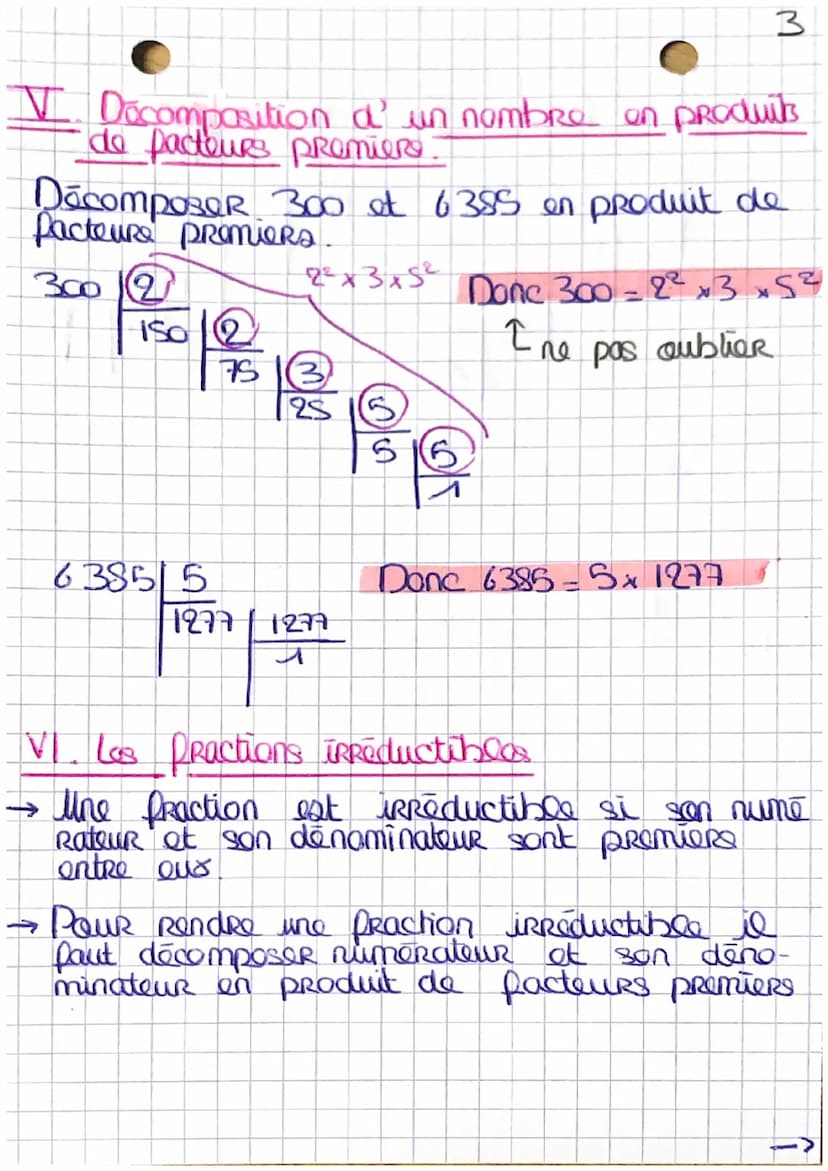 3
V. Décomposition d'un nombre en produits
de facteurs premiers.
Décomposer 300 et 6385 en produit de
facteurs premiers.
300 2 2² x 3 x 5² Donc 300 = 2² x 3 x 5²
150 2 ↑ ne pas oublier
75 3
25 5
5 5
1
6385 5 Donc 6385 = 5 x 1277
1277 1277
1
VI. Les fractions irréductibles
→ Une fraction est irréductible si son numé
rateur et son dénominateur sont premiers
entre eux.
→ Pour rendre une fraction irréductible il
faut décomposer numérateur et son déno-
minateur en produit de facteurs premiers
→